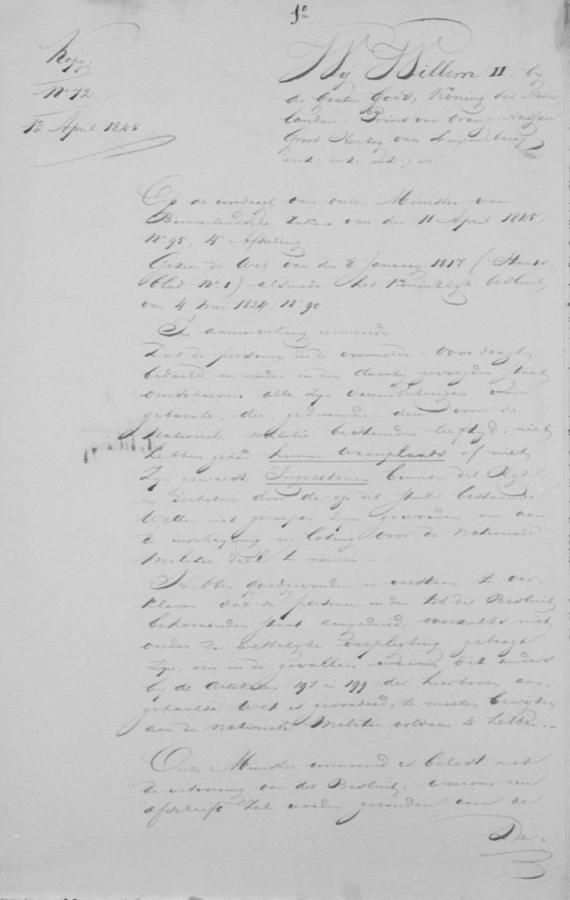 1º
Kopij.
Nº 72
13 April 1845
Wij Willem II. bij
de Gratie Gods, Koning der Neder-
landen, Prins van Oranje Nassau
Groot Hertog van Luxemburg
enz: enz: enz:
Op de voordragt van onzen Minister van
Binnenlandsche Zaken van den 11 April 1845,
Nº 95, 4e Afdeeling.
Gezien de Wet van den 8 January 1817 (Staats-
blad Nº 1) alsmede het Koninklijk besluit
van 4 Mei 1824, Nº 90
In aanmerking nemende
Dat de personen in de voormelde voordragt
bedoeld en nader in den staat
omschreven, alle zijn
geboorte, die, gedurende den voor de
Nationale Militie bestemden leeftijd, niet
hebben gehad hunne woonplaats of niet
zijn geweest, Ingezetenen binnen dit Rijk
en derhalve door de op dit stuk bestaande
Wetten niet geroepen zijn geworden om aan
de inschrijving en loting voor de Nationale
Militie deel te nemen.
Hebben goedgevonden en verstaan te ver-
klaren dat de personen in den tot dit Besluit
behoorenden staat aangeduid, niet
onder de wettelijke verpligting gebragt
zijn, om in de gevallen, waarin dit anders
bij de artikelen 197 en 199 der hierboven aan-
gehaalde Wet is gevorderd, te moeten bewijzen
aan de Nationale Militie voldaan te hebben.
Onze Minister voornoemd is belast met
de uitvoering van dit Besluit, waarvan een
afschrift zal worden gezonden aan de
De